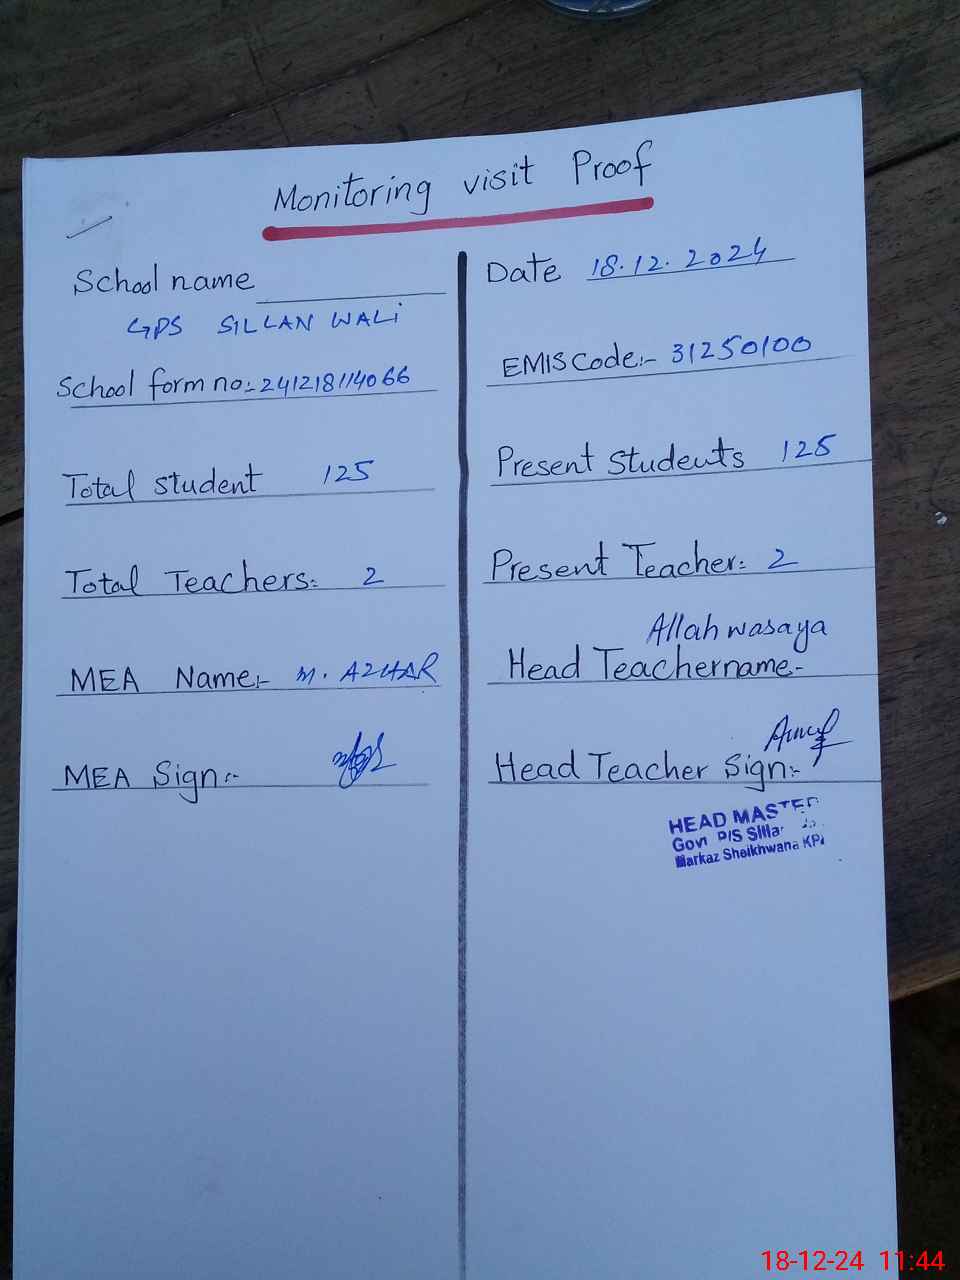 Monitoring visit Proof
School name
GPS SILLAN WALI
School form no:- 241218114066
Total student 125
Total Teachers:- 2
MEA Name:- M. AZHAR
MEA Sign:-
Date 18.12.2024
EMIS Code:- 31250100
Present Students 125
Present Teacher:- 2
Allah wasaya
Head Teacher name-
Head Teacher Sign:-
HEAD MASTER
Markaz Sheikhwana
18-12-24 11:44